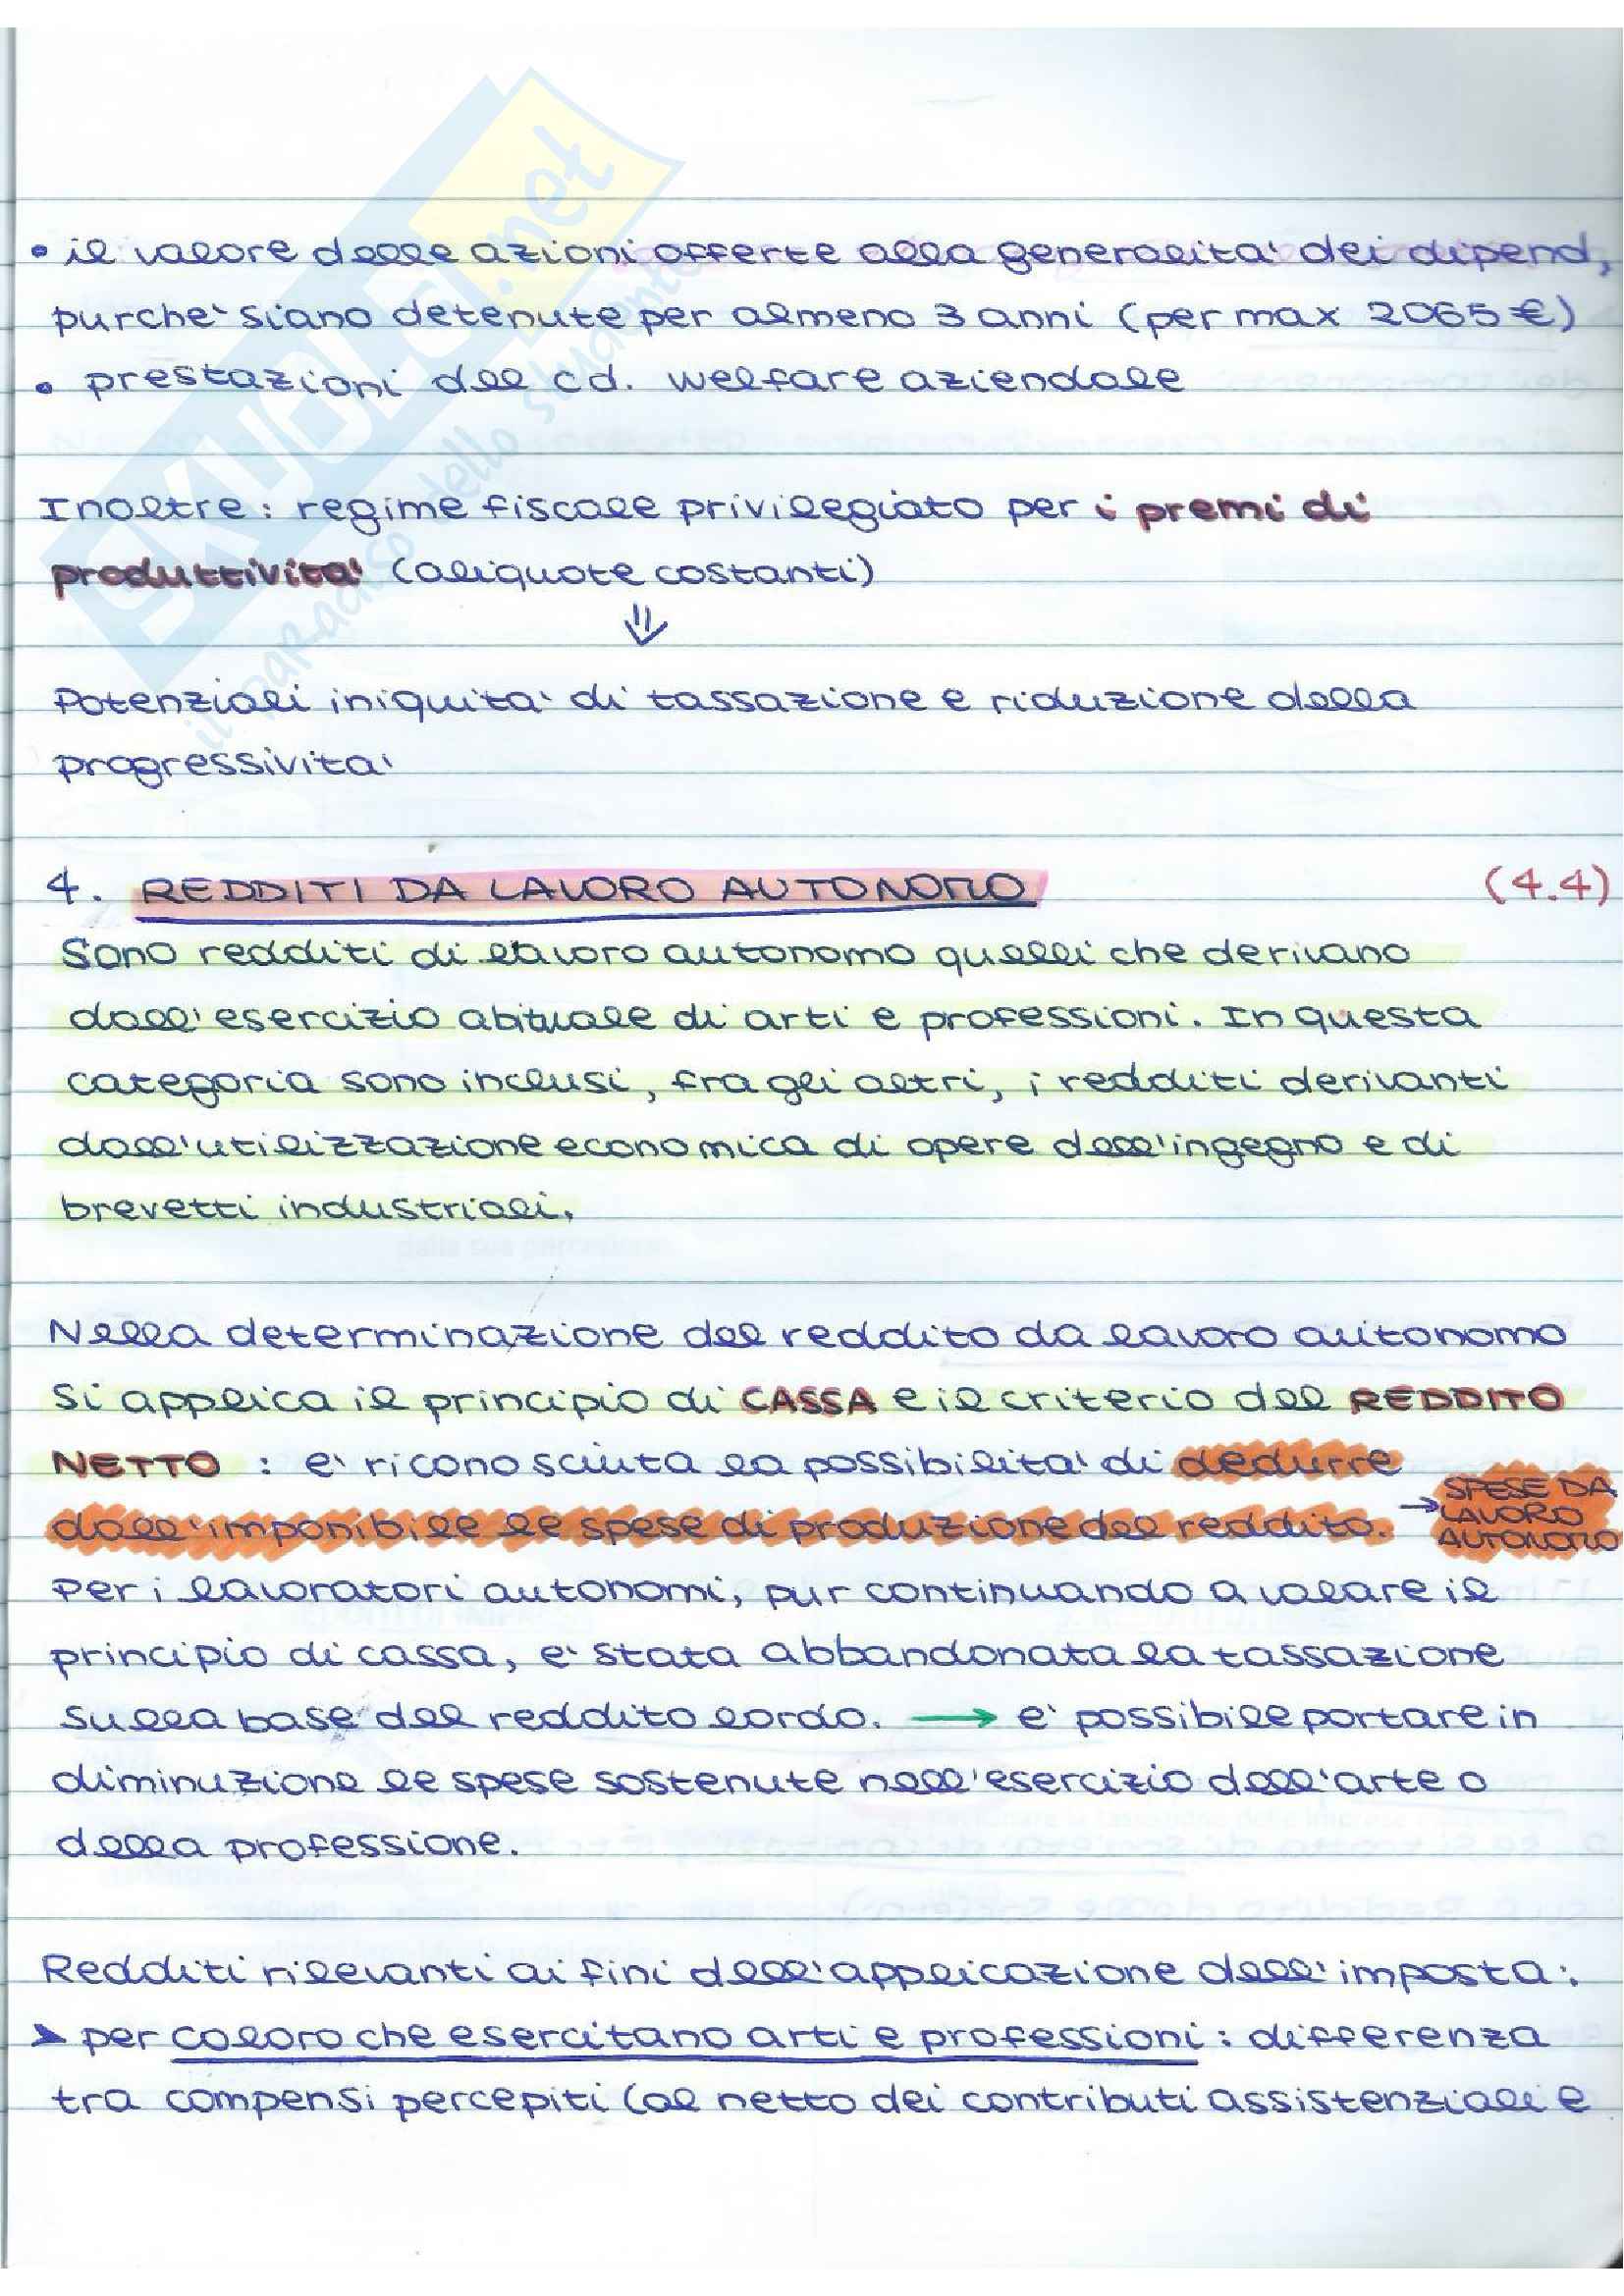 SKUOLA.net
il paradiso dello studente
• il valore delle azioni offerte alla generalita' dei dipend,
purche' siano detenute per almeno 3 anni (per max 2065 €)
• prestazioni del cd. welfare aziendale
Inoltre: regime fiscale privilegiato per i premi di
produttivita' (aliquote costanti)
⇓
Potenziali iniquita' di tassazione e riduzione della
progressivita'
4. REDDITI DA LAVORO AUTONOMO (4.4)
Sono redditi di lavoro autonomo quelli che derivano
dall'esercizio abituale di arti e professioni. In questa
categoria sono inclusi, fra gli altri, i redditi derivanti
dall'utilizzazione economica di opere dell'ingegno e di
brevetti industriali.
Nella determinazione del reddito da lavoro autonomo
si applica il principio di CASSA e il criterio del REDDITO
NETTO : e' riconosciuta la possibilita' di dedurre
dall'imponibile le spese di produzione del reddito. → SPESE DA
LAVORO
AUTONOMO
Per i lavoratori autonomi, pur continuando a valare il
principio di cassa, e' stata abbandonata la tassazione
sulla base del reddito lordo. → e' possibile portare in
diminuzione le spese sostenute nell'esercizio dell'arte o
della professione.
Redditi rilevanti ai fini dell'applicazione dell'imposta:
➤ per coloro che esercitano arti e professioni : differenza
tra compensi percepiti (al netto dei contributi assistenziali e